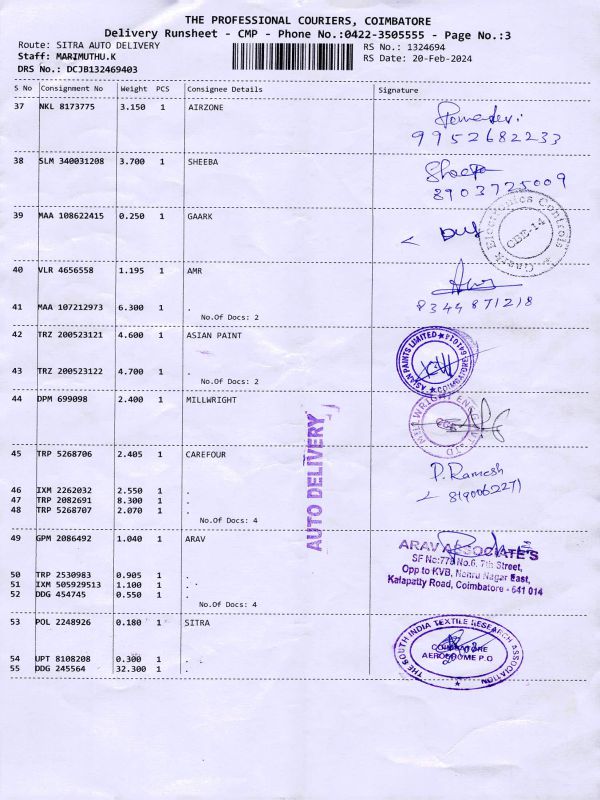 THE PROFESSIONAL COURIERS, COIMBATORE
Delivery Runsheet - CMP - Phone No.:0422-3505555 - Page No.:3
Route: SITRA AUTO DELIVERY
RS No.: 1324694
Staff: MARIMUTHU.K
RS Date: 20-Feb-2024
DRS No.: DCJB132469403
S No Consignment No Weight PCS Consignee Details Signature
37 NKL 8173775 3.150 1 AIRZONE
9952682233
38 SLM 340031208 3.700 1 SHEEBA
8903725009
39 MAA 108622415 0.250 1 GAARK
Gaark Electronics Controls
CBE-14
40 VLR 4656558 1.195 1 AMR
8344871218
41 MAA 107212973 6.300 1 .
No.Of Docs: 2
42 TRZ 200523121 4.600 1 ASIAN PAINT
ASIAN PAINTS LIMITED ★ COIMBATORE 641014 ★
43 TRZ 200522122 4.700 1 .
No.Of Docs: 2
44 DPM 699098 2.400 1 MILLWRIGHT
AUTO DELIVERY
45 TRP 5268706 2.405 1 CAREFOUR
P. Ramesh
8190062271
46 IXM 2262032 2.550 1 .
47 TRP 2082691 8.300 1 .
48 TRP 5268707 2.070 1 .
No.Of Docs: 4
49 GPM 2086492 1.040 1 ARAV
ARAV ASSOCIATE'S
SF No:778 No.6, 7th Street,
Opp to KVB, Nehru Nagar East,
Kalapatty Road, Coimbatore - 641 014
50 TRP 2530983 0.905 1 .
51 IXM 505929513 1.100 1 .
52 DDG 454745 0.550 1 .
No.Of Docs: 4
53 POL 2248926 0.180 1 SITRA
THE SOUTH INDIA TEXTILE RESEARCH ASSOCIATION
COIMBATORE
AERODROME P.O
★
54 UPT 8108208 0.300 1 .
55 DDG 245564 32.300 1 .